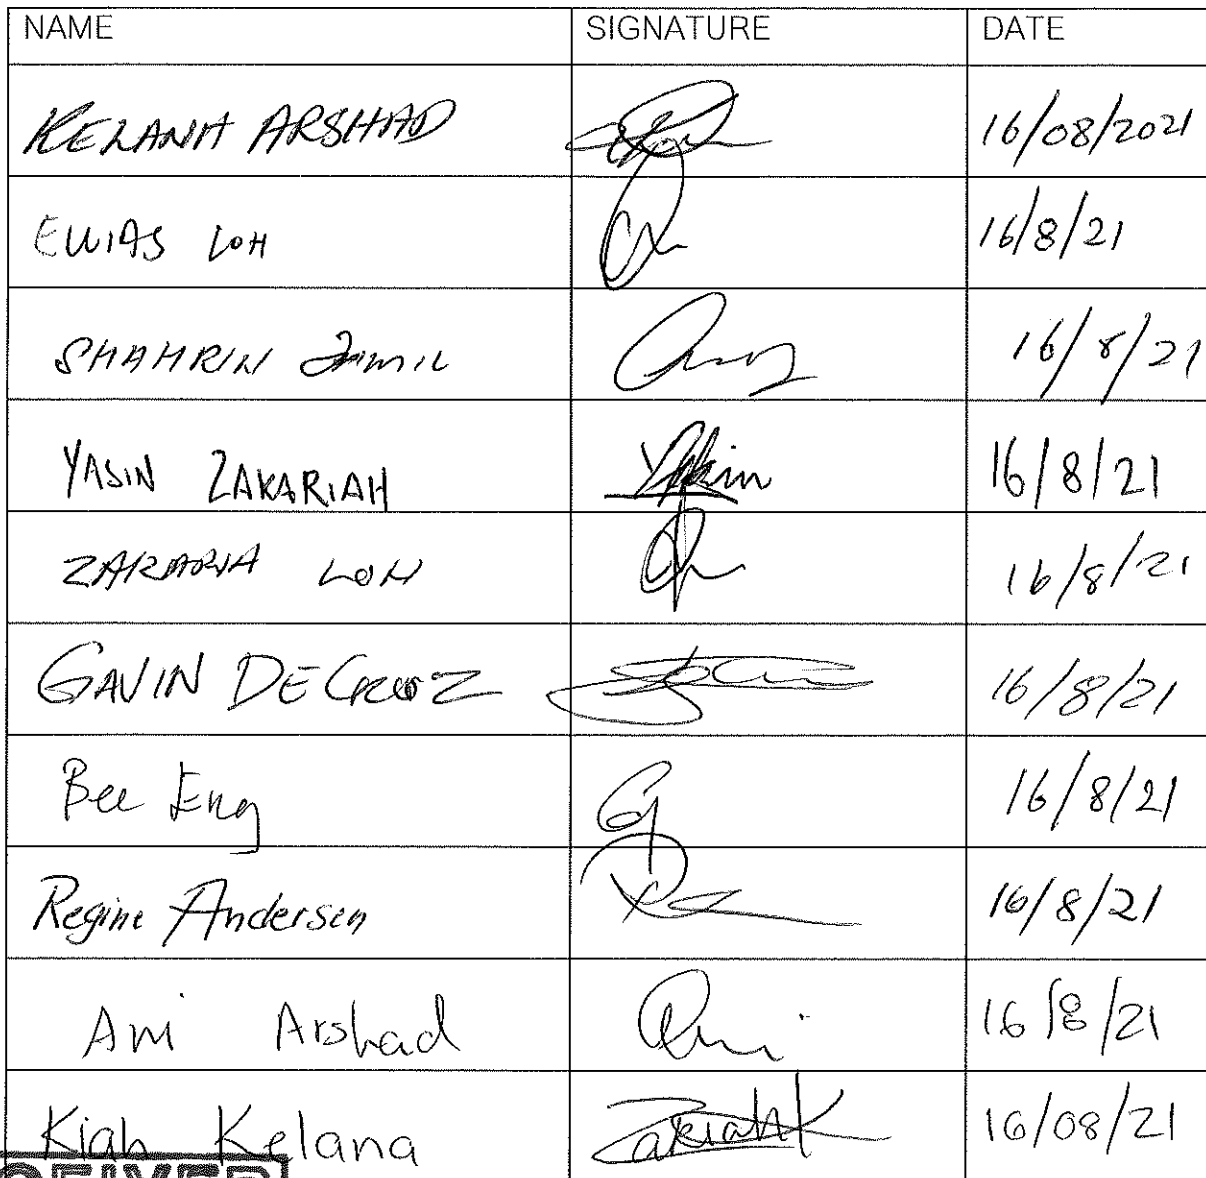 NAME SIGNATURE DATE
KELANA ARSHAD 16/08/2021
ELLIAS LOH 16/8/21
SHAHRIN JAMIL 16/8/21
YASIN ZAKARIAH Yakin 16/8/21
ZAKARIA LOH 16/8/21
GAVIN DE CRUZ 16/8/21
Bee Eng 16/8/21
Regine Andersen 16/8/21
Ani Arshad 16/8/21
Kiah Kelana Zakiah K 16/08/21